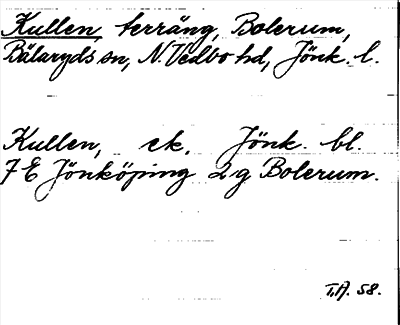 Kullen, terräng, Bolerum,
Bälaryds sn, N. Vedbo hd, Jönk. l.
Kullen, ek. Jönk. bl.
7 E Jönköping 2 g Bolerum.
T.A. 58.